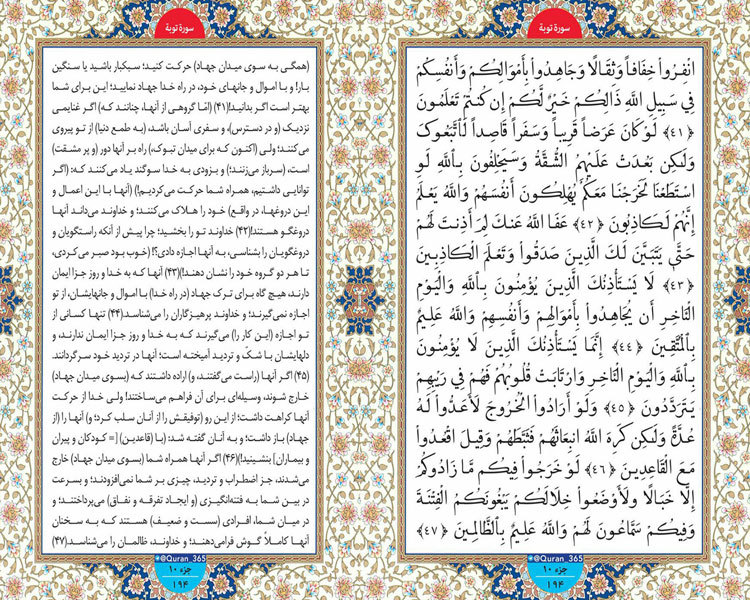 سورة توبة
انْفِرُوا خِفَافاً وَثِقَالًا وَجَاهِدُوا بِأَمْوَالِكُمْ وَأَنْفُسِكُمْ
فِي سَبِيلِ اللَّهِ ذَالِكُمْ خَيْرٌ لَكُمْ إِن كُنتُمْ تَعْلَمُونَ
﴿٤١﴾ لَوْ كَانَ عَرَضاً قَرِيباً وَسَفَراً قَاصِداً لَاتَّبَعُوكَ
وَلَكِن بَعُدَتْ عَلَيْهِمُ الشُّقَّةُ وَسَيَحْلِفُونَ بِاللَّهِ لَوِ
اسْتَطَعْنَا لَخَرَجْنَا مَعَكُمْ يُهْلِكُونَ أَنفُسَهُمْ وَاللَّهُ يَعْلَمُ
إِنَّهُمْ لَكَاذِبُونَ ﴿٤٢﴾ عَفَا اللَّهُ عَنكَ لِمَ أَذِنتَ لَهُمْ
حَتَّى يَتَبَيَّنَ لَكَ الَّذِينَ صَدَقُوا وَتَعْلَمَ الْكَاذِبِينَ
﴿٤٣﴾ لَا يَسْتَأْذِنُكَ الَّذِينَ يُؤْمِنُونَ بِاللَّهِ وَالْيَوْمِ
الْآخِرِ أَن يُجَاهِدُوا بِأَمْوَالِهِمْ وَأَنفُسِهِمْ وَاللَّهُ عَلِيمٌ
بِالْمُتَّقِينَ ﴿٤٤﴾ إِنَّمَا يَسْتَأْذِنُكَ الَّذِينَ لَا يُؤْمِنُونَ
بِاللَّهِ وَالْيَوْمِ الْآخِرِ وَارْتَابَتْ قُلُوبُهُمْ فَهُمْ فِي رَيْبِهِمْ
يَتَرَدَّدُونَ ﴿٤٥﴾ وَلَوْ أَرَادُوا الْخُرُوجَ لَأَعَدُّوا لَهُ
عُدَّةً وَلَكِن كَرِهَ اللَّهُ انبِعَاثَهُمْ فَثَبَّطَهُمْ وَقِيلَ اقْعُدُوا
مَعَ الْقَاعِدِينَ ﴿٤٦﴾ لَوْ خَرَجُوا فِيكُم مَّا زَادُوكُمْ
إِلَّا خَبَالًا وَلَأَوْضَعُوا خِلَالَكُمْ يَبْغُونَكُمُ الْفِتْنَةَ
وَفِيكُمْ سَمَّاعُونَ لَهُمْ وَاللَّهُ عَلِيمٌ بِالظَّالِمِينَ ﴿٤٧﴾
@Quran_365
جزء ١٠
١٩٤
سورة توبة
(همگی به سوی میدان جهاد) حرکت کنید؛ سبکبار باشید یا سنگین
بار! و با اموال و جانهای خود، در راه خدا جهاد نمایید؛ این برای شما
بهتر است اگر بدانید!(۴۱) (امّا گروهی از آنها، چنانند که) اگر غنایمی
نزدیک (و در دسترس)، و سفری آسان باشد، (به طمع دنیا) از تو پیروی
می‌کنند؛ ولی (اکنون که برای میدان تبوک،) راه بر آنها دور (و پر مشقت)
است، (سرباز می‌زنند؛) و بزودی به خدا سوگند یاد می‌کنند که: (اگر
توانایی داشتیم، همراه شما حرکت می‌کردیم!) (آنها با این اعمال و
این دروغها، در واقع) خود را هلاک می‌کنند؛ و خداوند می‌داند آنها
دروغگو هستند!(۴۲) خداوند تو را بخشید؛ چرا پیش از آنکه راستگویان و
دروغگویان را بشناسی، به آنها اجازه دادی؟! (خوب بود صبر می‌کردی،
تا هر دو گروه خود را نشان دهند!)(۴۳) آنها که به خدا و روز جزا ایمان
دارند، هیچ گاه برای ترک جهاد (در راه خدا) با اموال و جانهایشان، از تو
اجازه نمی‌گیرند؛ و خداوند پرهیزگاران را می‌شناسد.(۴۴) تنها کسانی از
تو اجازه (این کار را) می‌گیرند که به خدا و روز جزا ایمان ندارند، و
دلهایشان با شکّ و تردید آمیخته است؛ آنها در تردید خود سرگردانند.
(۴۵) اگر آنها (راست می‌گفتند، و) اراده داشتند که (بسوی میدان جهاد)
خارج شوند، وسیله‌ای برای آن فراهم می‌ساختند! ولی خدا از حرکت
آنها کراهت داشت؛ از این رو (توفیقش را از آنان سلب کرد؛ و) آنها را (از
جهاد) باز داشت؛ و به آنان گفته شد: (با (قاعدین) [= کودکان و پیران
و بیماران] بنشینید!)(۴۶) اگر آنها همراه شما (بسوی میدان جهاد) خارج
می‌شدند، جز اضطراب و تردید، چیزی بر شما نمی‌افزودند؛ و بسرعت
در بین شما به فتنه‌انگیزی (و ایجاد تفرقه و نفاق) می‌پرداختند؛ و
در میان شما، افرادی (سست و ضعیف) هستند که به سخنان
آنها کاملاً گوش فرامی‌دهند؛ و خداوند، ظالمان را می‌شناسد.(۴۷)
@Quran_365
جزء ١٠
١٩٤